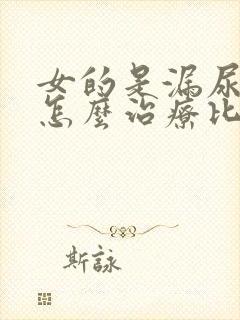 女的是漏尿
怎麼治療比
斯詠